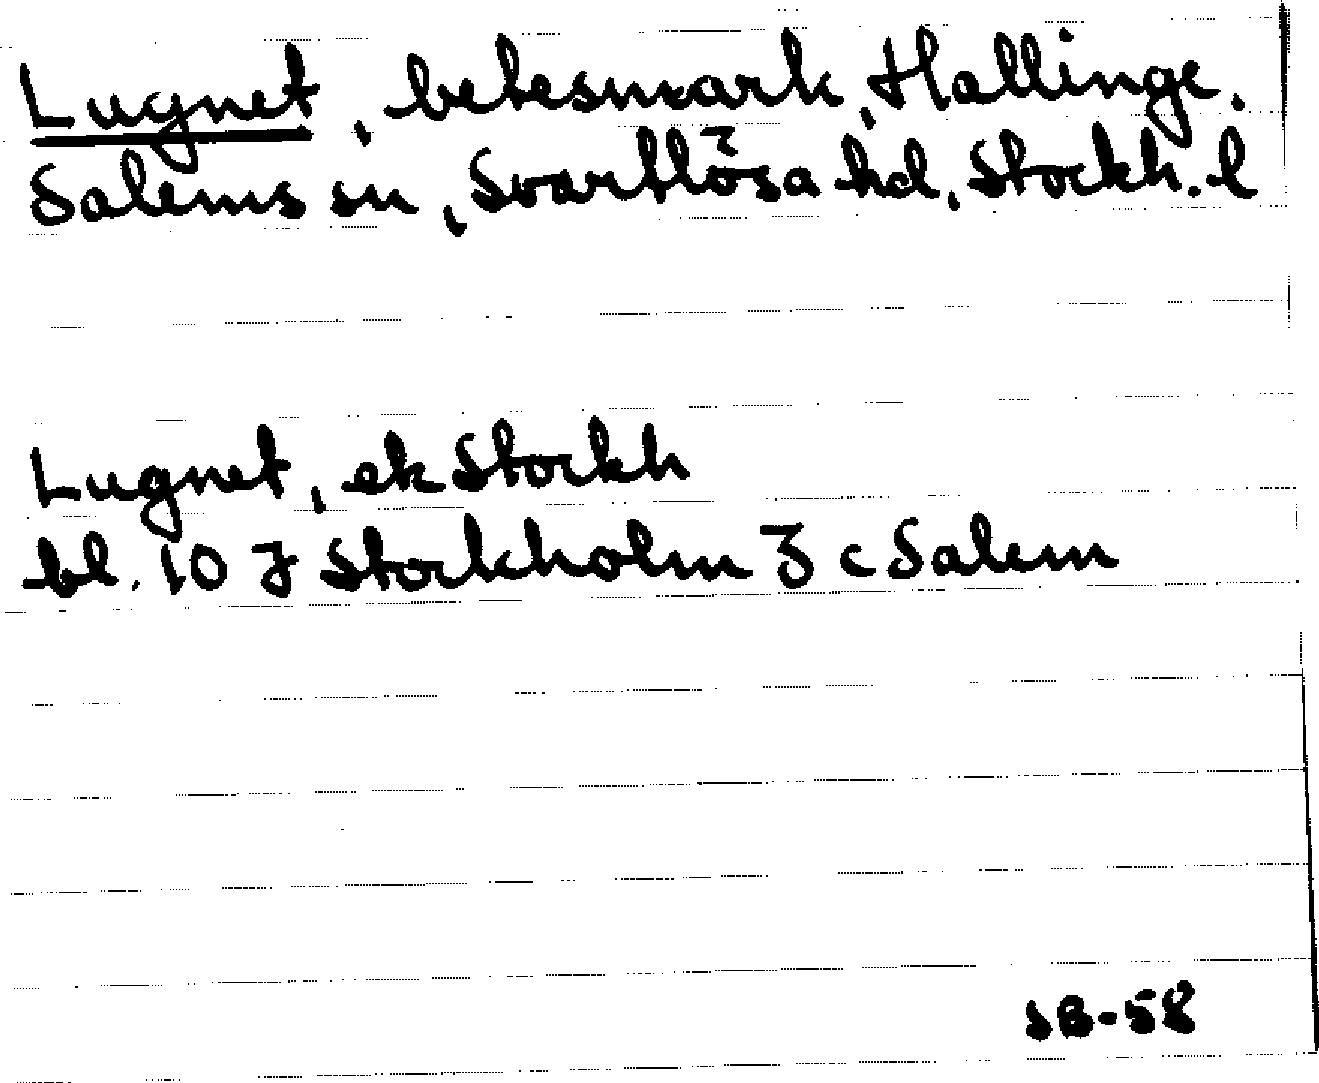 Lugnet, betesmark, Hallinge.
Salems sn, Svartlösa hd, Stockh. l
Lugnet, ek Stockh
bl. 10 J Stockholm 3 c Salem
SB-58